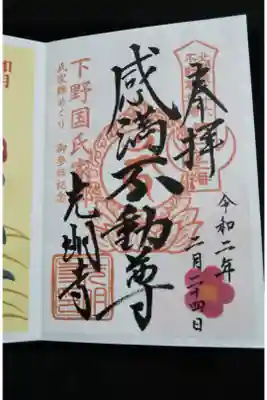 奉拝
令和二年
二月二十四日
感満不動尊
下野国氏家
氏家雛めぐり 御参拝記念
光明寺